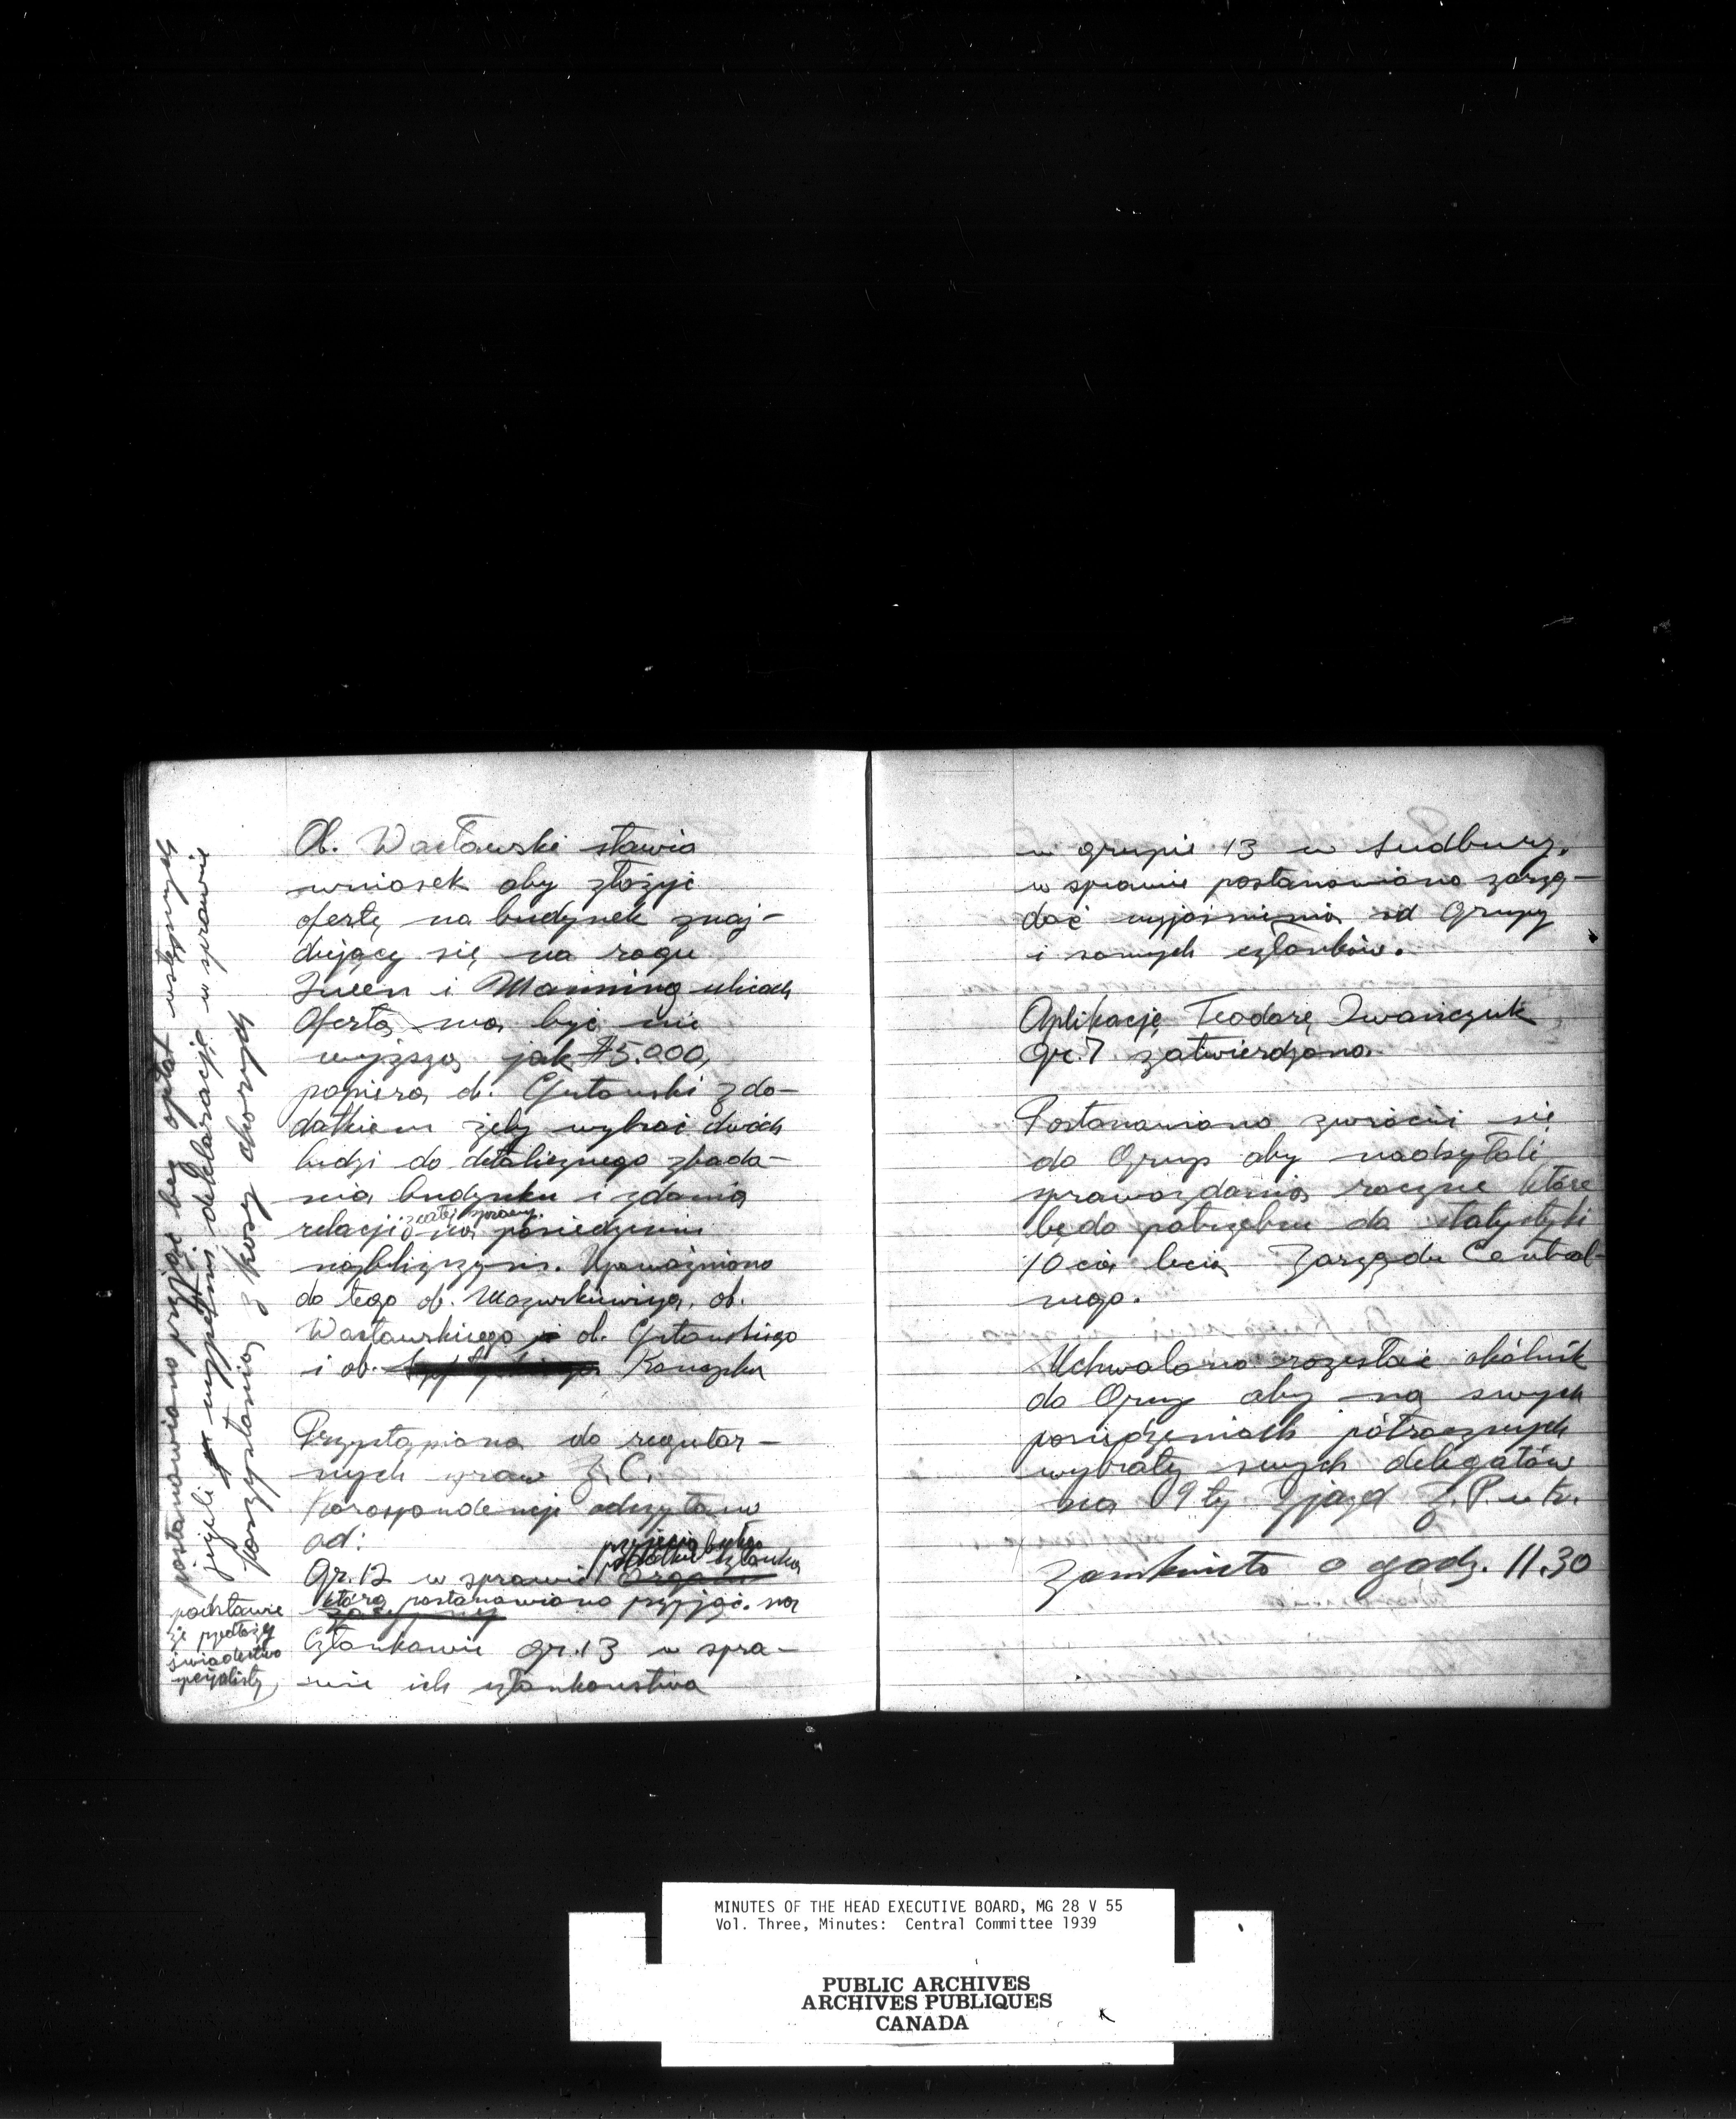 Ob. Wacławski stawia
wniosek aby złożyć
ofertę na budynek znaj-
dujący się na rogu
Queen i Manning ulicach
Oferta ma być nie
wyższa jak $5.000,
popiera ob. Gutowski z do-
datkiem żeby wybrać dwóch
ludzi do detalicznego zbada-
nia budynku i zdania
relacji z całej sprawy na posiedzeniu
najbliższym. Upoważniono
do tego ob. Mazurkiewicza, ob.
Wacławskiego ob. Gutowskiego
i ob. Konaszka
Przystąpiono do regular-
nych spraw Z.C.
Korespondencje odczytano
od:
przyjęcia byłego
członka
Gr. 12 w sprawie
które postanowiono przyjąć. na
Członkowie gr. 13 w spra-
wie ich członkowstwa
podstawie
że przedłoży
świadectwo
specjalisty,
postanowiono przyjąć bez opłat wstępnych
jeżeli wypełni deklaracje w sprawie
korzystania z kasy chorych
w grupie 13 w Sudbury.
w sprawie postanowiono zażą-
dać wyjaśnienia od Grupy
i samych członków.
Aplikację Teodorę Iwańczuk
Gr. 7 zatwierdzono.
Postanowiono zwrócić się
do Grup aby nadsyłali
sprawozdania roczne które
będo potrzebne do statystyki
10 cio lecia Zarządu Central-
nego.
Uchwalono rozesłać okólnik
do Grup aby na swych
posiedzeniach półrocznych
wybrały swych delegatów
na 9ty Zjazd Z.P. w K.
Zamknięto o godz. 11.30
MINUTES OF THE HEAD EXECUTIVE BOARD, MG 28 V 55
Vol. Three, Minutes: Central Committee 1939
PUBLIC ARCHIVES
ARCHIVES PUBLIQUES
CANADA